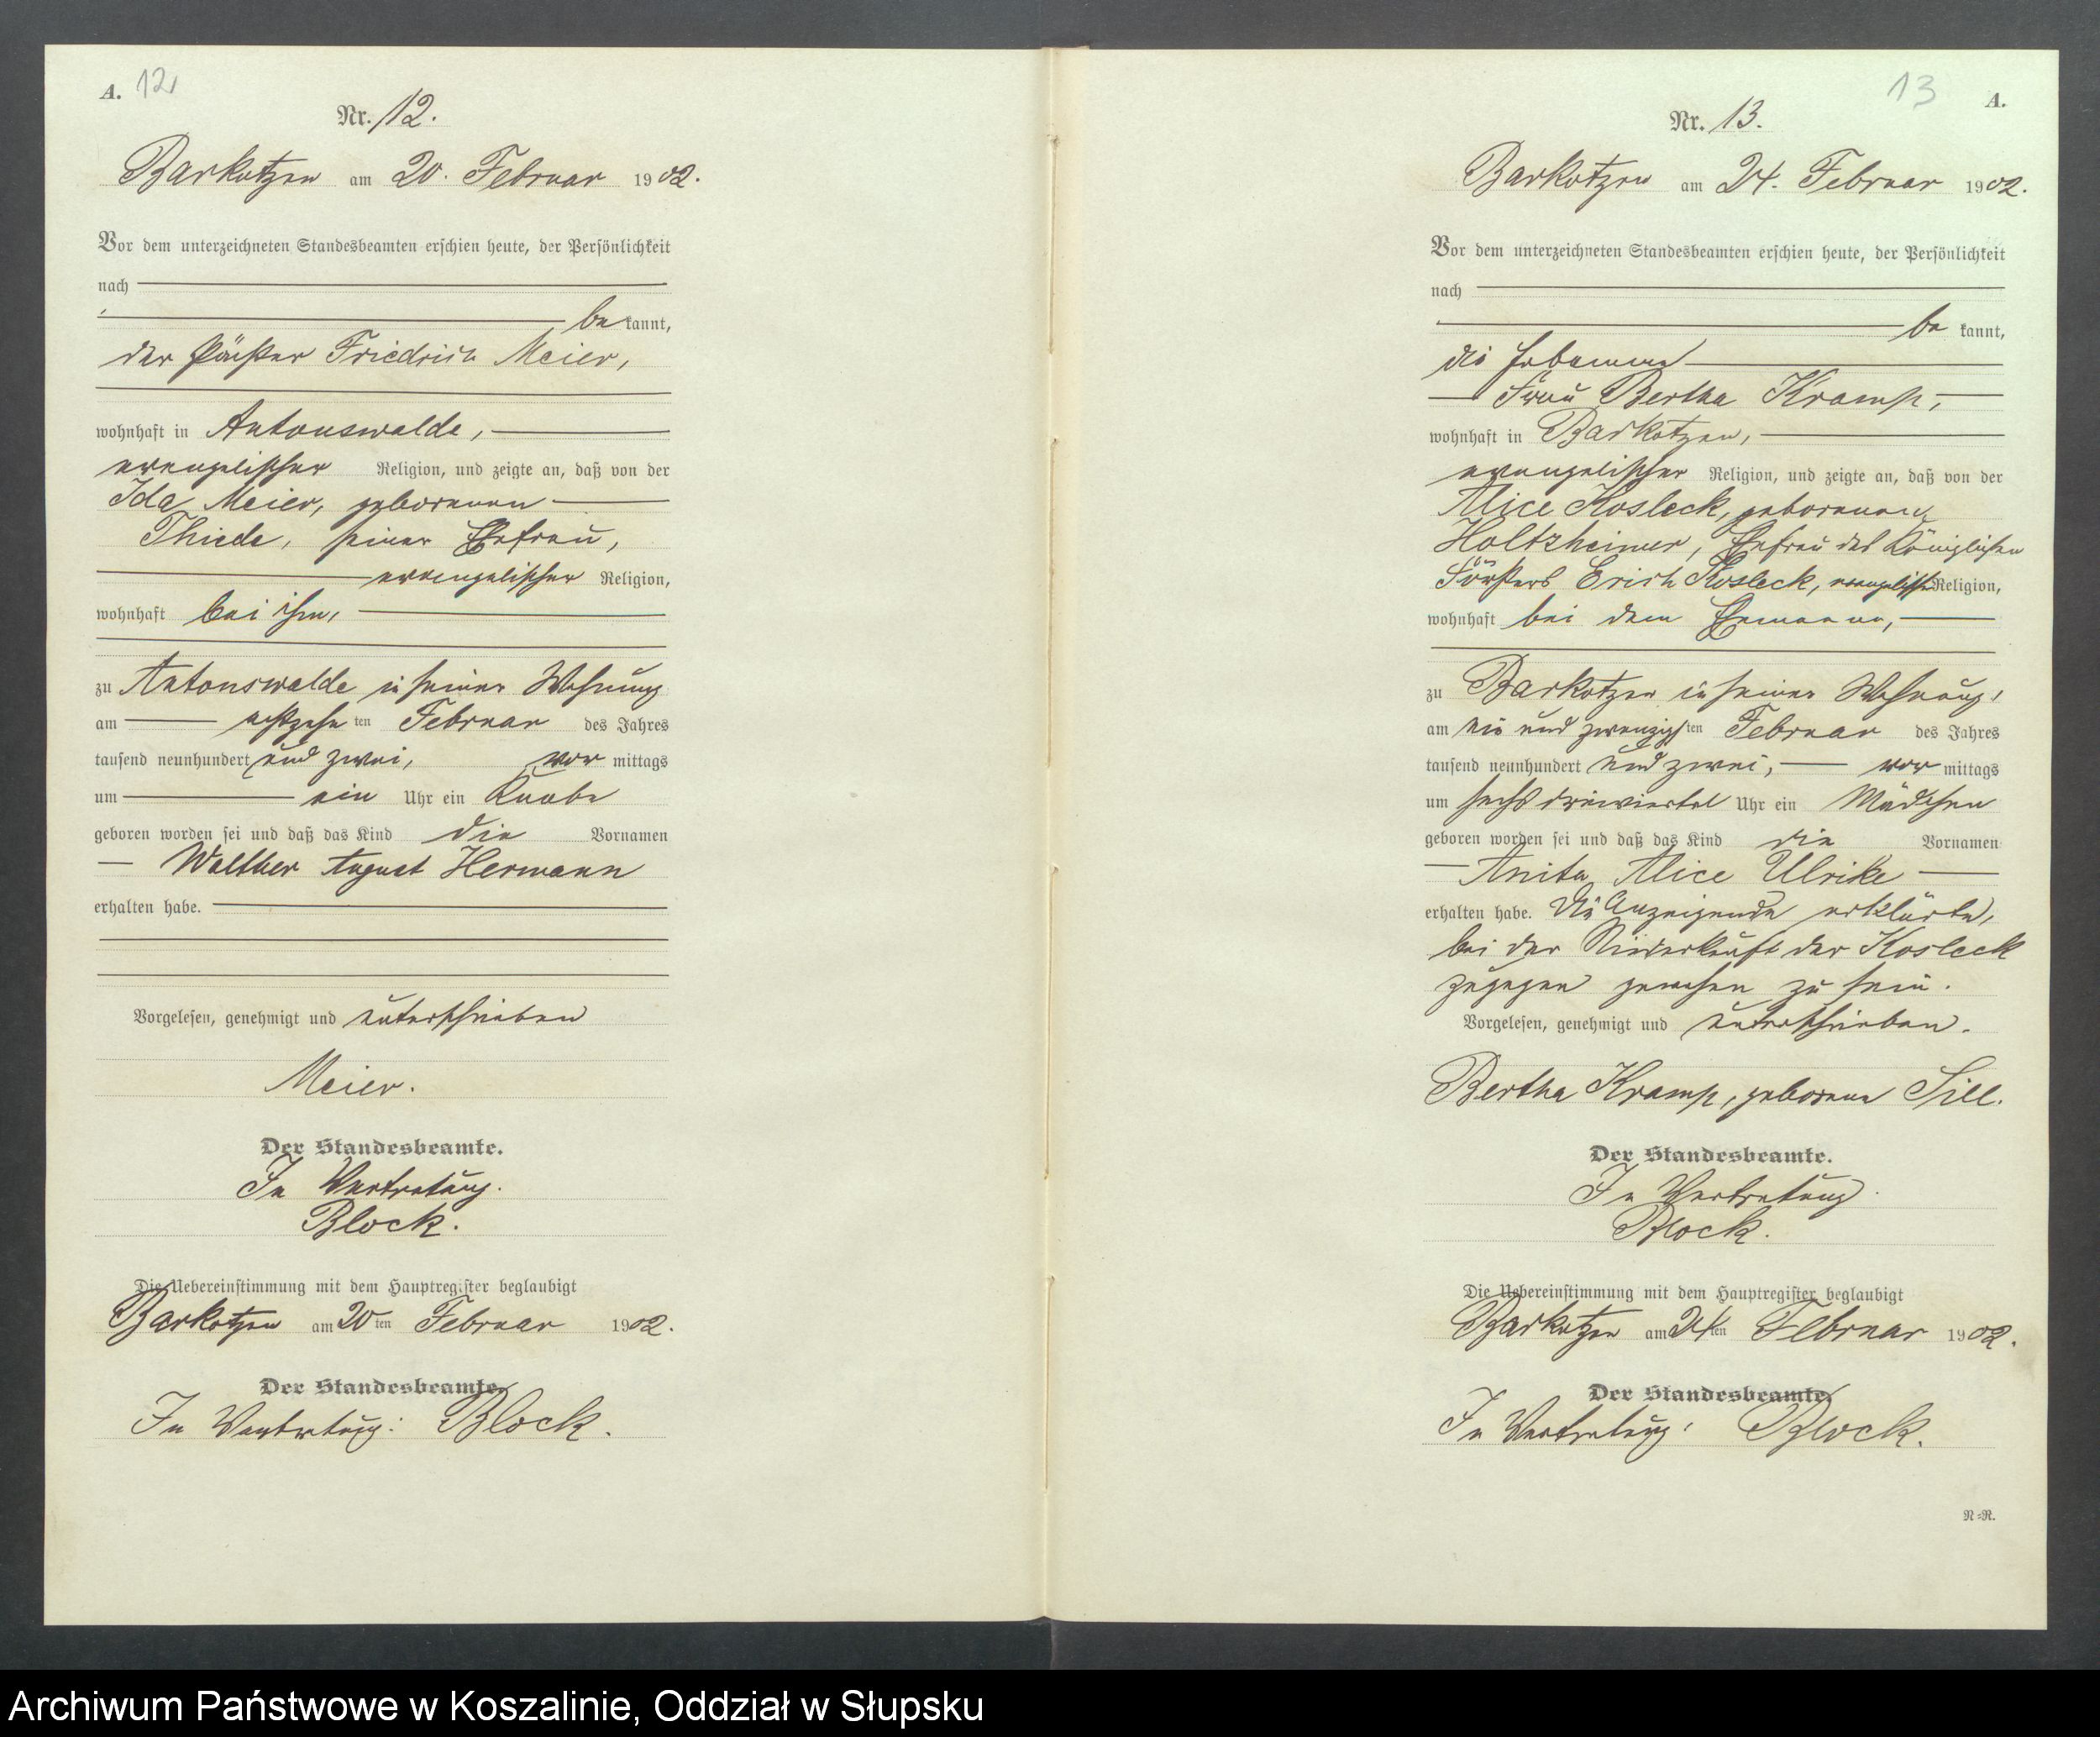 A. 12
Nr. 12.
Barkotzen am 20. Februar 1902.
Vor dem unterzeichneten Standesbeamten erschien heute, der Persönlichkeit
nach
be kannt,
der Förster Friedrich Meier,
wohnhaft in Antonswalde,
evangelischer Religion, und zeigte an, daß von der
Ida Meier, geborenen
Thiede, seiner Ehefrau,
evangelischer Religion,
wohnhaft bei ihm,
zu Antonswalde in seiner Wohnung
am achtzehn ten Februar des Jahres
tausend neunhundert und zwei, vor mittags
um ein Uhr ein Knabe
geboren worden sei und daß das Kind die Vornamen
Walther August Hermann
erhalten habe.
Vorgelesen, genehmigt und unterschrieben
Meier.
Der Standesbeamte.
In Vertretung.
Block.
Die Uebereinstimmung mit dem Hauptregister beglaubigt
Barkotzen am 20 ten Februar 1902.
Der Standesbeamte.
In Vertretung: Block.
13 A.
Nr. 13.
Barkotzen am 24. Februar 1902.
Vor dem unterzeichneten Standesbeamten erschien heute, der Persönlichkeit
nach
be kannt,
die Hebamme
Frau Bertha Kramp,
wohnhaft in Barkotzen,
evangelischer Religion, und zeigte an, daß von der
Alice Kosleck, geborenen
Holtzheimer, Ehefrau des Königlichen
Försters Erich Kosleck, evangelischer Religion,
wohnhaft bei dem Ehemanne,
zu Barkotzen in seiner Wohnung,
am ein und zwanzigsten Februar des Jahres
tausend neunhundert und zwei, vor mittags
um sechs dreiviertel Uhr ein Mädchen
geboren worden sei und daß das Kind die Vornamen
Anita Alice Ulrike
erhalten habe. Die Anzeigende erklärte,
bei der Niederkunft der Kosleck
zugegen gewesen zu sein.
Vorgelesen, genehmigt und unterschrieben.
Bertha Kramp, geborene Sill.
Der Standesbeamte.
In Vertretung.
Block.
Die Uebereinstimmung mit dem Hauptregister beglaubigt
Barkotzen am 24 ten Februar 1902.
Der Standesbeamte.
In Vertretung: Block.
N=R.
Archiwum Państwowe w Koszalinie, Oddział w Słupsku